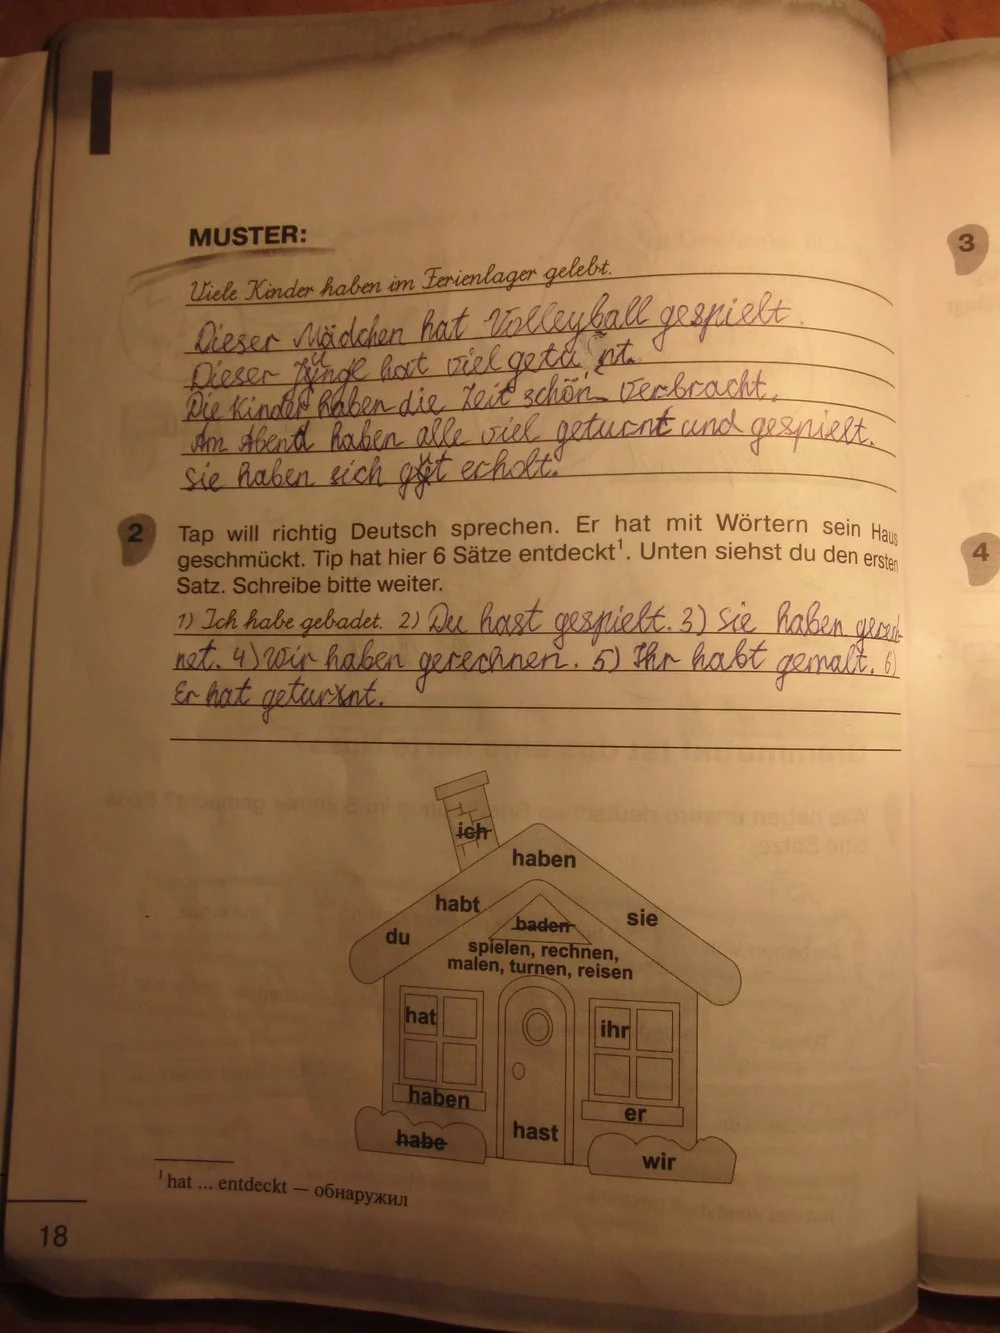 MUSTER:
Viele Kinder haben im Ferienlager gelebt.
Dieser Mädchen hat Volleyball gespielt.
Dieser Junge hat viel geturnt.
Die Kinder haben die Zeit schön verbracht.
Am Abend haben alle viel geturnt und gespielt.
Sie haben sich gut erholt.
2 Tap will richtig Deutsch sprechen. Er hat mit Wörtern sein Haus
geschmückt. Tip hat hier 6 Sätze entdeckt¹. Unten siehst du den ersten
Satz. Schreibe bitte weiter.
1) Ich habe gebadet. 2) Du hast gespielt. 3) Sie haben
net. 4) Wir haben gerechnen. 5) Ihr habt gemalt. 6)
Er hat geturnt.
ich
haben
habt
sie
baden
du
spielen, rechnen,
malen, turnen, reisen
hat
ihr
haben
er
habe
hast
wir
¹ hat ... entdeckt — обнаружил
18
3
4